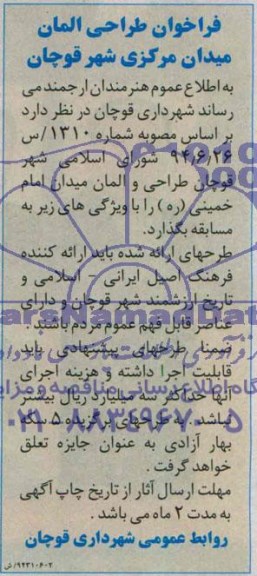 فراخوان طراحی المان
میدان مرکزی شهر قوچان
به اطلاع عموم هنرمندان ارجمند می
رساند شهرداری قوچان در نظر دارد
بر اساس مصوبه شماره ۱۳۱۰/س
۹۴/۶/۲۶ شورای اسلامی شهر
قوچان طراحی و المان میدان امام
خمینی (ره) را با ویژگی های زیر به
مسابقه بگذارد.
طرحهای ارائه شده باید ارائه کننده
فرهنگ اصیل ایرانی - اسلامی و
تاریخ ارزشمند شهر قوچان و دارای
عناصر قابل فهم عموم مردم باشند.
ضمنا طرحهای پیشنهادی باید
قابلیت اجرا داشته و هزینه اجرای
آنها حداکثر سه میلیارد ریال بیشتر
نباشد. به طرحهای برگزیده ۵ سکه
بهار آزادی به عنوان جایزه تعلق
خواهد گرفت.
مهلت ارسال آثار از تاریخ چاپ آگهی
به مدت ۲ ماه می باشد.
روابط عمومی شهرداری قوچان
۹۴۳۱۰۶۰۲/ش
ParsNamadData
۰۲۱-۸۸۳۴۹۶۷۰-۵